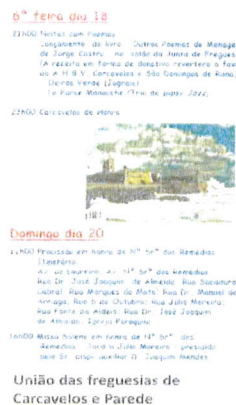 6ª feira dia 18
21h00 Noites com Poemas
Lançamento do livro "Outros Poemas de Menage
de Jorge Castro no salão da Junta de Fregues
(A receita em forma de donativo reverterá a fav
do A H B V. Carcavelos e São Domingos de Rana,
Oeiras Verde (Jograis)
23h00 Carcavelos de Honra
Domingo dia 20
Procissão em honra de Nª Srª dos Remédios
Itinerário
Av. de Loureiro, Av. Nª Srª dos Remédios
Rua Dr. José Joaquim de Almeida, Rua Sacadura
Cabral, Rua Marques de Mata, Rua Dr. Manuel de
Arriaga, Rua 5 de Outubro, Rua Júlio Moreira,
Rua Forte da Aldeia, Rua Dr. José Joaquim
de Almeida, Igreja Paroquial
16h00 Missa Solene em honra de Nª Srª dos
Remédios Jardim Júlio Moreira presidida
pelo Sr. Bispo auxiliar D. Joaquim Mendes
União das freguesias de
Carcavelos e Parede